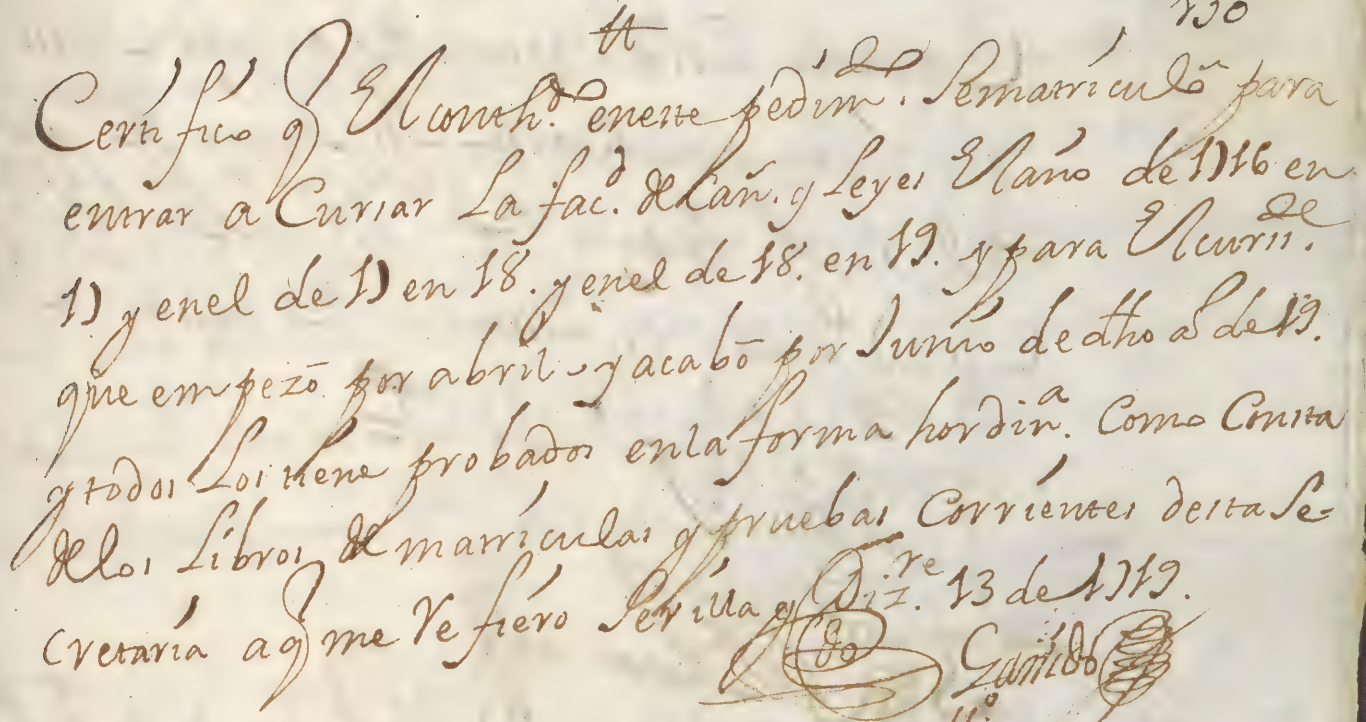 Certifico q El conth.do en este pedim.to Se matriculô para
entrar a Cursar La fac.d de Cañ. y Leyes El año de 1716 en
17 y en el de 17 en 18. y en el de 18. en 19. y para El cursi.
que empezô por abril y acabô por Junio de dho a.o de 19.
y todos Los tiene probados en la forma hordin.a Como Consta
de los Libros de matriculas y pruebas Corrientes desta Se-
cretaría a q me Refiero Sevilla y Diz.re 13 de 1719.